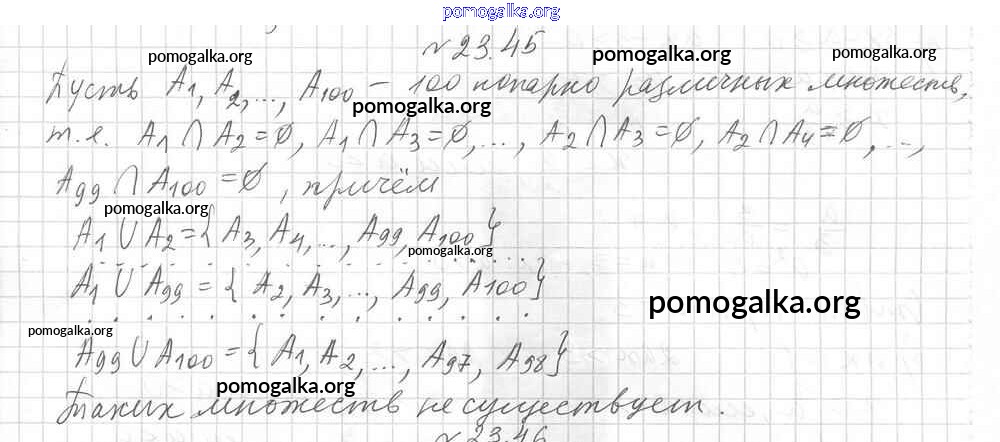 pomogalka.org
№ 23.45
pomogalka.org pomogalka.org pomogalka.org
Пусть A1, A2, ..., A100 – 100 попарно различных множеств,
pomogalka.org
т.е. A1 ∩ A2 = ∅, A1 ∩ A3 = ∅, ..., A2 ∩ A3 = ∅, A2 ∩ A4 = ∅, ...,
A99 ∩ A100 = ∅, причём
pomogalka.org
A1 ∪ A2 = { A3, A4, ..., A99, A100 }
pomogalka.org
. . . . . . . . . . . . . .
A1 ∪ A99 = { A2, A3, ..., A99, A100 }
pomogalka.org
. . . . . . . . . . . . . .
pomogalka.org
A99 ∪ A100 = { A1, A2, ..., A97, A98 }
pomogalka.org
Таких множеств не существует.
№ 23.46